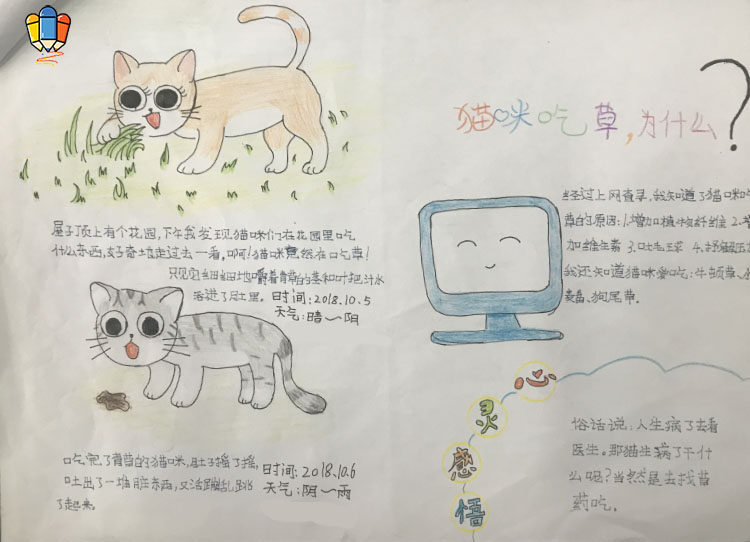 猫咪吃草,为什么?
屋子顶上有个花园,下午我发现猫咪们在花园里吃
什么东西,好奇地走过去一看,啊!猫咪竟然在吃草!
只见它细细地嚼着青草的茎和叶把汁水
活进了肚里。时间:2018.10.5
天气:晴~阴
吃完了青草的猫咪,肚子摇了摇,
吐出了一堆脏东西,又活蹦乱跳
了起来。
时间:2018.10.6
天气:阴~雨
经过上网查寻,我知道了猫咪吃
草的原因:1.增加植物纤维 2.
加维生素 3.吐毛球 4.舒解压
我还知道猫咪爱吃:牛顿草、
麦苗、狗尾草。
心灵感悟
俗话说:人生病了去看
医生。那猫生病了干什
么呢?当然是去找苗
药吃。